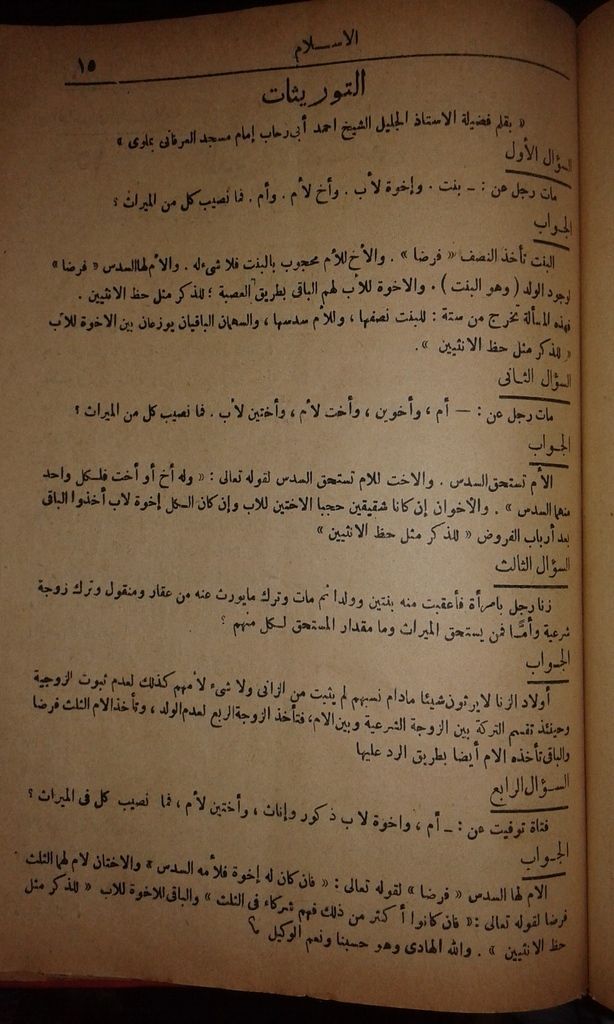 الاسلام
١٥
التوريثات
« بقلم فضيلة الاستاذ الجليل الشيخ احمد أبى رحاب إمام مسجد العرفانى بملوى »
السؤال الأول
مات رجل عن : ــ بنت . وإخوة لأب . وأخ لأم . وأم . فما نصيب كل من الميراث ؟
الجواب
البنت تأخذ النصف « فرضا » . والأخ للأم محجوب بالبنت فلا شىء له . والأم لها السدس « فرضا »
لوجود الولد ( وهو البنت ) . والاخوة للأب لهم الباقى بطريق العصبة ؛ للذكر مثل حظ الانثيين .
فهذه المسألة تخرج من ستة : للبنت نصفها ، وللأم سدسها ، والسهمان الباقيان يوزعان بين الاخوة للأب
« للذكر مثل حظ الانثيين » .
السؤال الثانى
مات رجل عن : ــ أم ، وأخوين ، وأخت لأم ، وأختين لأب . فما نصيب كل من الميراث ؟
الجواب
الأم تستحق السدس . والاخت للام تستحق السدس لقوله تعالى : « وله أخ أو أخت فلكل واحد
منهما السدس » . والأخوان إن كانا شقيقين حجبا الاختين للاب وإن كان الكل إخوة لاب أخذوا الباقى
بعد أرباب الفروض « للذكر مثل حظ الانثيين »
السؤال الثالث
زنا رجل بامرأة فأعقبت منه بنتين وولدا ثم مات وترك مايورث عنه من عقار ومنقول وترك زوجة
شرعية وأمًّا فمن يستحق الميراث وما مقدار المستحق لكل منهم ؟
الجواب
أولاد الزنا لايرثون شيئا مادام نسبهم لم يثبت من الزانى ولا شىء لأمهم كذلك لعدم ثبوت الزوجية
وحينئذ تقسم التركة بين الزوجة الشرعية وبين الام ، فتأخذ الزوجة الربع لعدم الولد ، وتأخذ الام الثلث فرضا
والباقى تأخذه الام أيضا بطريق الرد عليها
السؤال الرابع
فتاة توفيت عن : ــ أم ، واخوة لاب ذكور وإناث ، وأختين لأم ، فما نصيب كل فى الميراث ؟
الجواب
الام لها السدس « فرضا » لقوله تعالى : « فان كان له إخوة فلأمه السدس » والاختان لام لهما الثلث
فرضا لقوله تعالى : « فان كانوا أكثر من ذلك فهم شركاء فى الثلث » والباقى للاخوة للاب « للذكر مثل
حظ الانثيين » . والله الهادى وهو حسبنا ونعم الوكيل